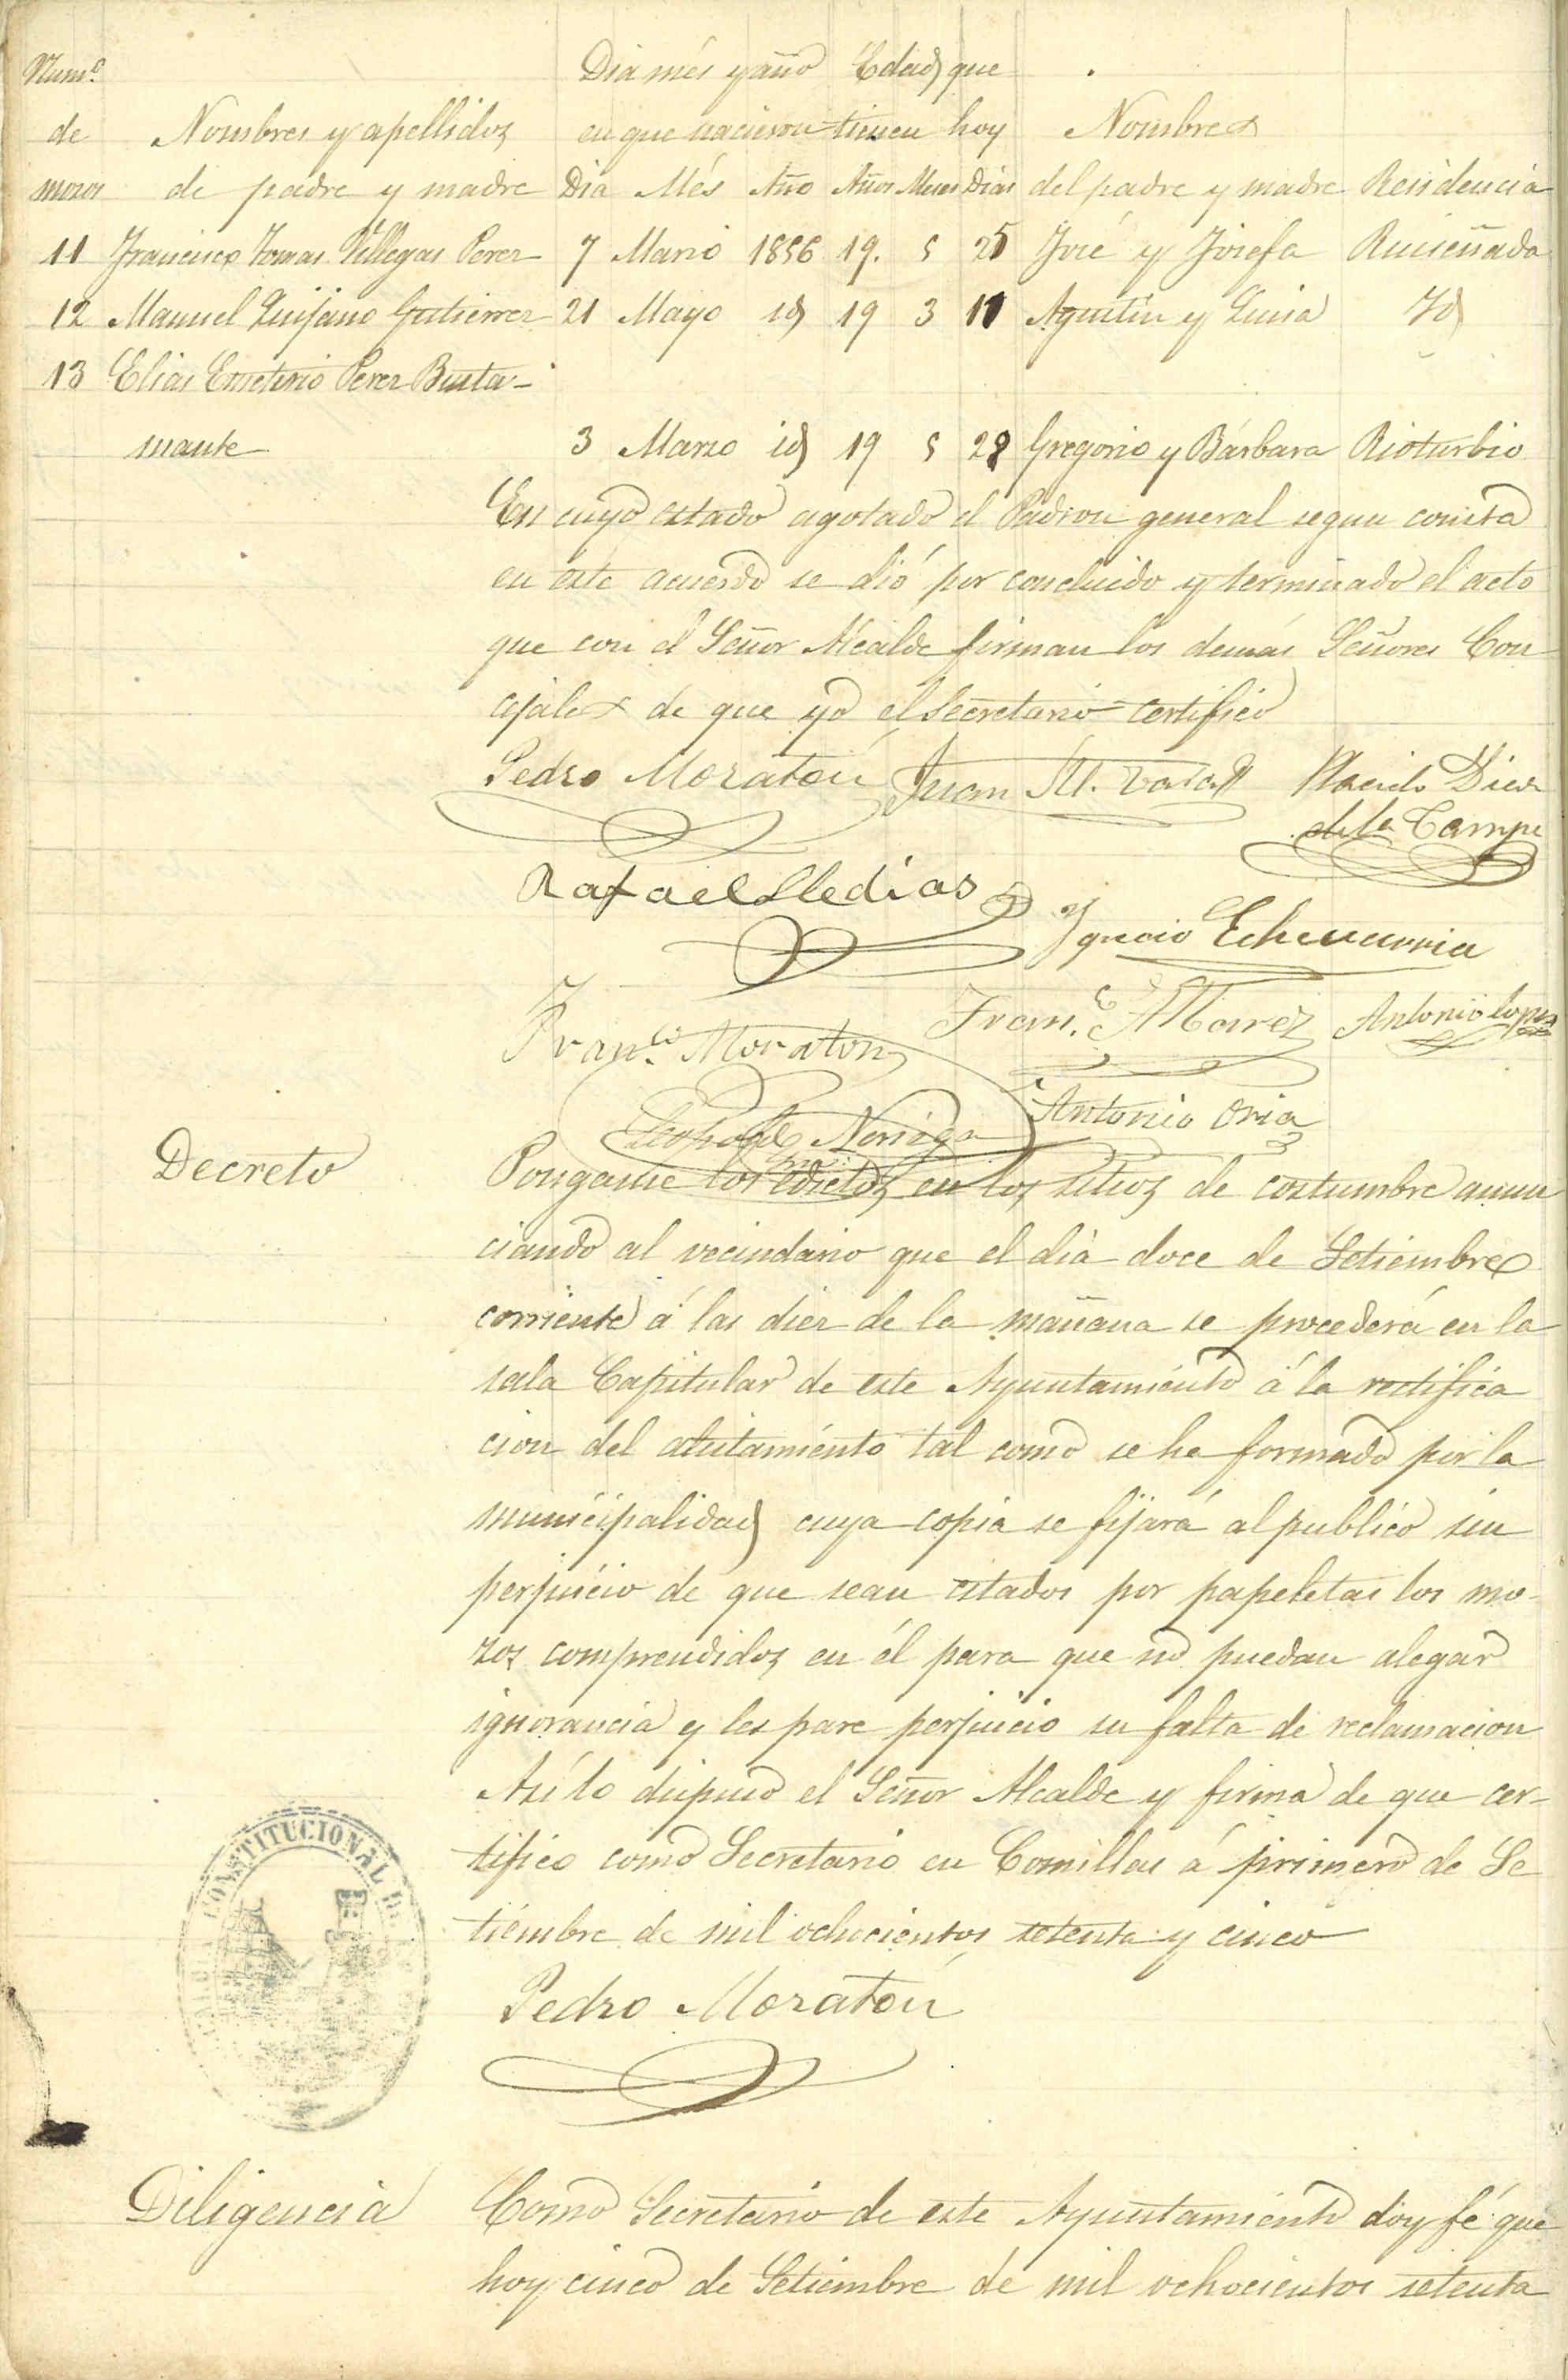 Num.º Dia més y año Edad que
de Nombres y apellidos en que nacieron tienen hoy Nombres
mozos de padre y madre Dia Més Año Años Meses Dias del padre y madre Residencia
11 Francisco Tomas Villegas Perez 7 Marzo 1856 19. 5 25 José y Josefa Ruiseñada
12 Manuel Quijano Gutierrez 21 Mayo id 19 3 11 Agustin y Luisa Id
13 Elias Emeterio Perez Busta-
mante 3 Marzo id 19 5 28 Gregorio y Bárbara Rioturbio
En cuyo estado agotado el Padron general segun consta
en este acuerdo se dió por concluido y terminado el acto
que con el Señor Alcalde firman los demás Señores Con
cejales de que yo el Secretario certifico
Pedro Moratón Juan M. Placido Diez
de la Campa
Rafael Lledias
Ygnacio Echevarria
Fran.co Moraton Fran.co Alvarez Antonio Lopez
Leopoldo Noriega Antonio Oria
Decreto Pongame los edictos en los sitios de costumbre anun
ciando al vecindario que el dia doce de Setiembre
corriente á las diez de la mañana se procederá en la
sala Capitular de este Ayuntamiento á la rectifica
cion del alistamiento tal como se ha formado por la
municipalidad cuya copia se fijará al publico sin
perjuicio de que sean citados por papeletas los mo-
zos comprendidos en él para que no puedan alegar
ignorancia y les pare perjuicio su falta de reclamacion
Así lo dispuso el Señor Alcalde y firma de que cer-
tifico como Secretario en Comillas á primero de Se
tiembre de mil ochocientos setenta y cinco
CONSTITUCIONAL DE
Pedro Moratón
Diligencia Como Secretario de este Ayuntamiento doy fé que
hoy cinco de Setiembre de mil ochocientos setenta